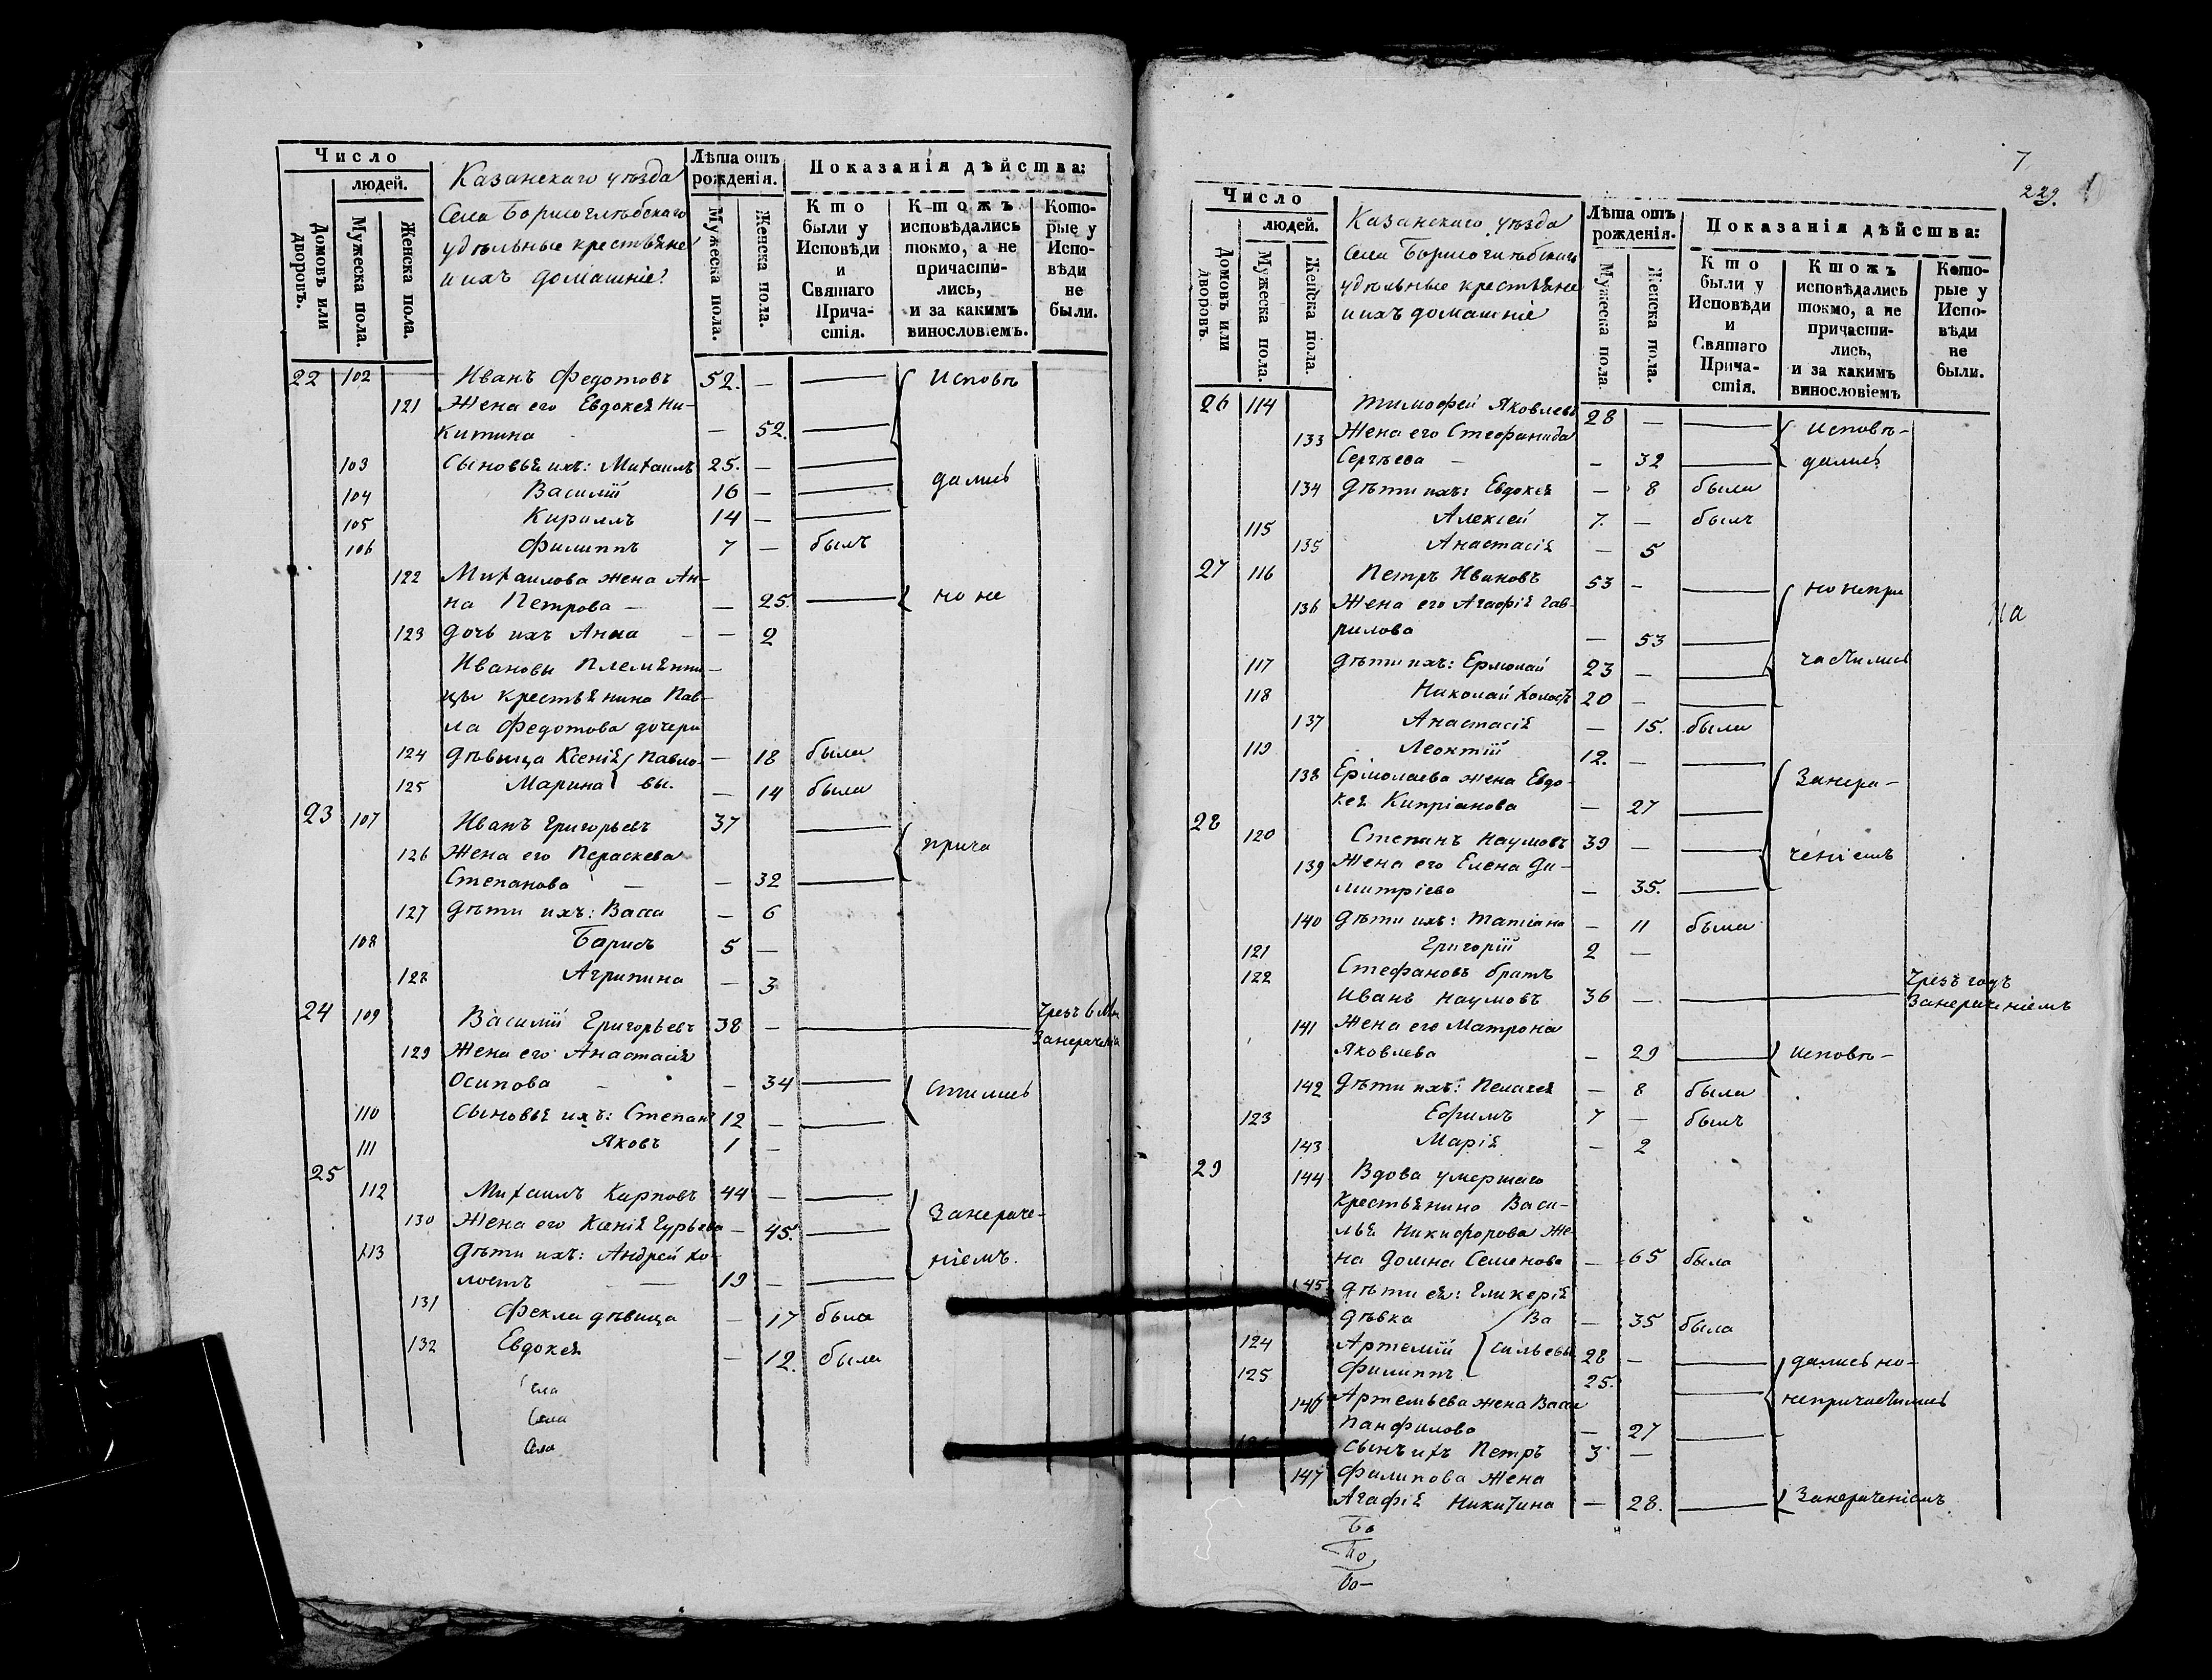 Число
людей.
Домовъ или дворовъ.
Мужеска пола.
Женска пола.
Казанскаго уѣзда
Села Борисоглѣбскаго
удѣльные крестьяне
и ихъ домашніе:
Лѣта отъ рожденія.
Мужеска пола.
Женска пола.
Показанія дѣйства:
Кто были у Исповѣди и Святаго Причастія.
Ктожъ исповѣдались токмо, а не причастились, и за какимъ винословіемъ.
Которые у Исповѣди не были.
22 102 Иванъ Федотовъ 52. — — Исповѣ
121 Жена его Евдокея Ни-
китина — 52. —
103 Сыновья ихъ: Михаилъ 25. — —
дались
104 Василій 16 — —
105 Кириллъ 14 — —
106 Филиппъ 7 — былъ
122 Михаилова жена Ан-
на Петрова — — 25. — но не
123 Дочь ихъ Анна — — 2
Ивановы Племянни-
цы крестьянина Пав-
ла Федотова дочери
124 Дѣвица Ксенія Павло- — 18 была
125 Марина вы. — 14 была
23 107 Иванъ Григорьевъ 37 — прича
126 Жена его Пераскева
Степанова — — 32 —
127 Дѣти ихъ: Васса — 6
108 Борисъ 5 —
128 Агрипина — 3
24 109 Василій Григорьевъ 38 — — Чрезъ 6 лѣтъ
Занерачені
129 Жена его Анастасія
Осипова — — 34 — стились
110 Сыновья ихъ: Степанъ 12 — —
111 Яковъ 1 —
25
112 Михаилъ Карповъ 44 — —
130 Жена его Ксенія Гурьева — 45. — Занераче-
113 Дѣти ихъ: Андрей хо-
лостъ — 19 — — ніемъ.
131 Фекла дѣвица — 17 была
132 Евдокея — 12. была
Села
Села
Села
7
229.
Число
людей.
Домовъ или дворовъ.
Мужеска пола.
Женска пола.
Казанскаго уѣзда
Села Борисоглѣбскаго
удѣльные крестьяне
и ихъ домашніе
Лѣта отъ рожденія.
Мужеска пола.
Женска пола.
Показанія дѣйства:
Кто были у Исповѣди и Святаго Причастія.
Ктожъ исповѣдались токмо, а не причастились, и за какимъ винословіемъ
Которые у Исповѣди не были.
26 114 Тимофей Яковлевъ 28 — — Исповѣ-
133 Жена его Стефанида
Сергѣева — — 32 — дались
134 Дѣти ихъ: Евдокея — 8 была
115 Алексей 7. — былъ
135 Анастасія — 5
27 116 Петръ Ивановъ 53 — — но непри
136 Жена его Агафія Гав-
рилова — 53 —
На
117 Дѣти ихъ: Ермолай 23 — — частились
118 Николай холостъ 20 — —
137 Анастасія — 15. была
119 Леонтій 12. — —
138 Ермолаева жена Евдо- Занера-
кея Кипріанова — 27 —
28
120 Степанъ Наумовъ 39 — —
139 Жена его Елена Ди- ченіемъ
митріева — 35. —
140 Дѣти ихъ: Татіана — 11 была
121 Григорій 2 —
122 Стефановъ братъ
Иванъ Наумовъ 36 — — Чрезъ годъ
Занераченіемъ
141 Жена его Матрона
Яковлева — 29 — исповѣ-
142 Дѣти ихъ: Пелагея — 8 была
123 Ефимъ 7 — былъ
143 Марія — 2
29
144 Вдова умершаго
крестьянина Васи-
лья Никифорова же-
на Домна Семенова — 65 была
145 Дѣти ея: Гликерія
дѣвка Ва — 35 была
124 Артемій сильевы 28 — — дались но-
125 Филиппъ 25. —
146 Артемьева жена Васса непричастились
Панфилова — 27 —
Сынъ ихъ Петръ 3 —
147 Филипова жена
Агафія Никитина — 28. — Занераченіемъ
Бо